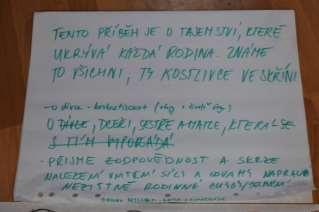 TENTO PŘÍBĚH JE O TAJEMSTVÍ, KTERÉ
UKRÝVÁ KAŽDÁ RODINA. ZNÁME
TO VŠICHNI, TY KOSTLIVCE VE SKŘÍNI
- O dívce -
O DÍVCE, DCEŘI, SESTŘE A MATCE, KTERÁ SE
S TÍM VYPOŘÁDÁ
- PŘIJME ZODPOVĚDNOST A SKRZE
NALEZENÍ VNITŘNÍ SÍLY A ODVAHY NAPRAVUJE
RODINNÉ